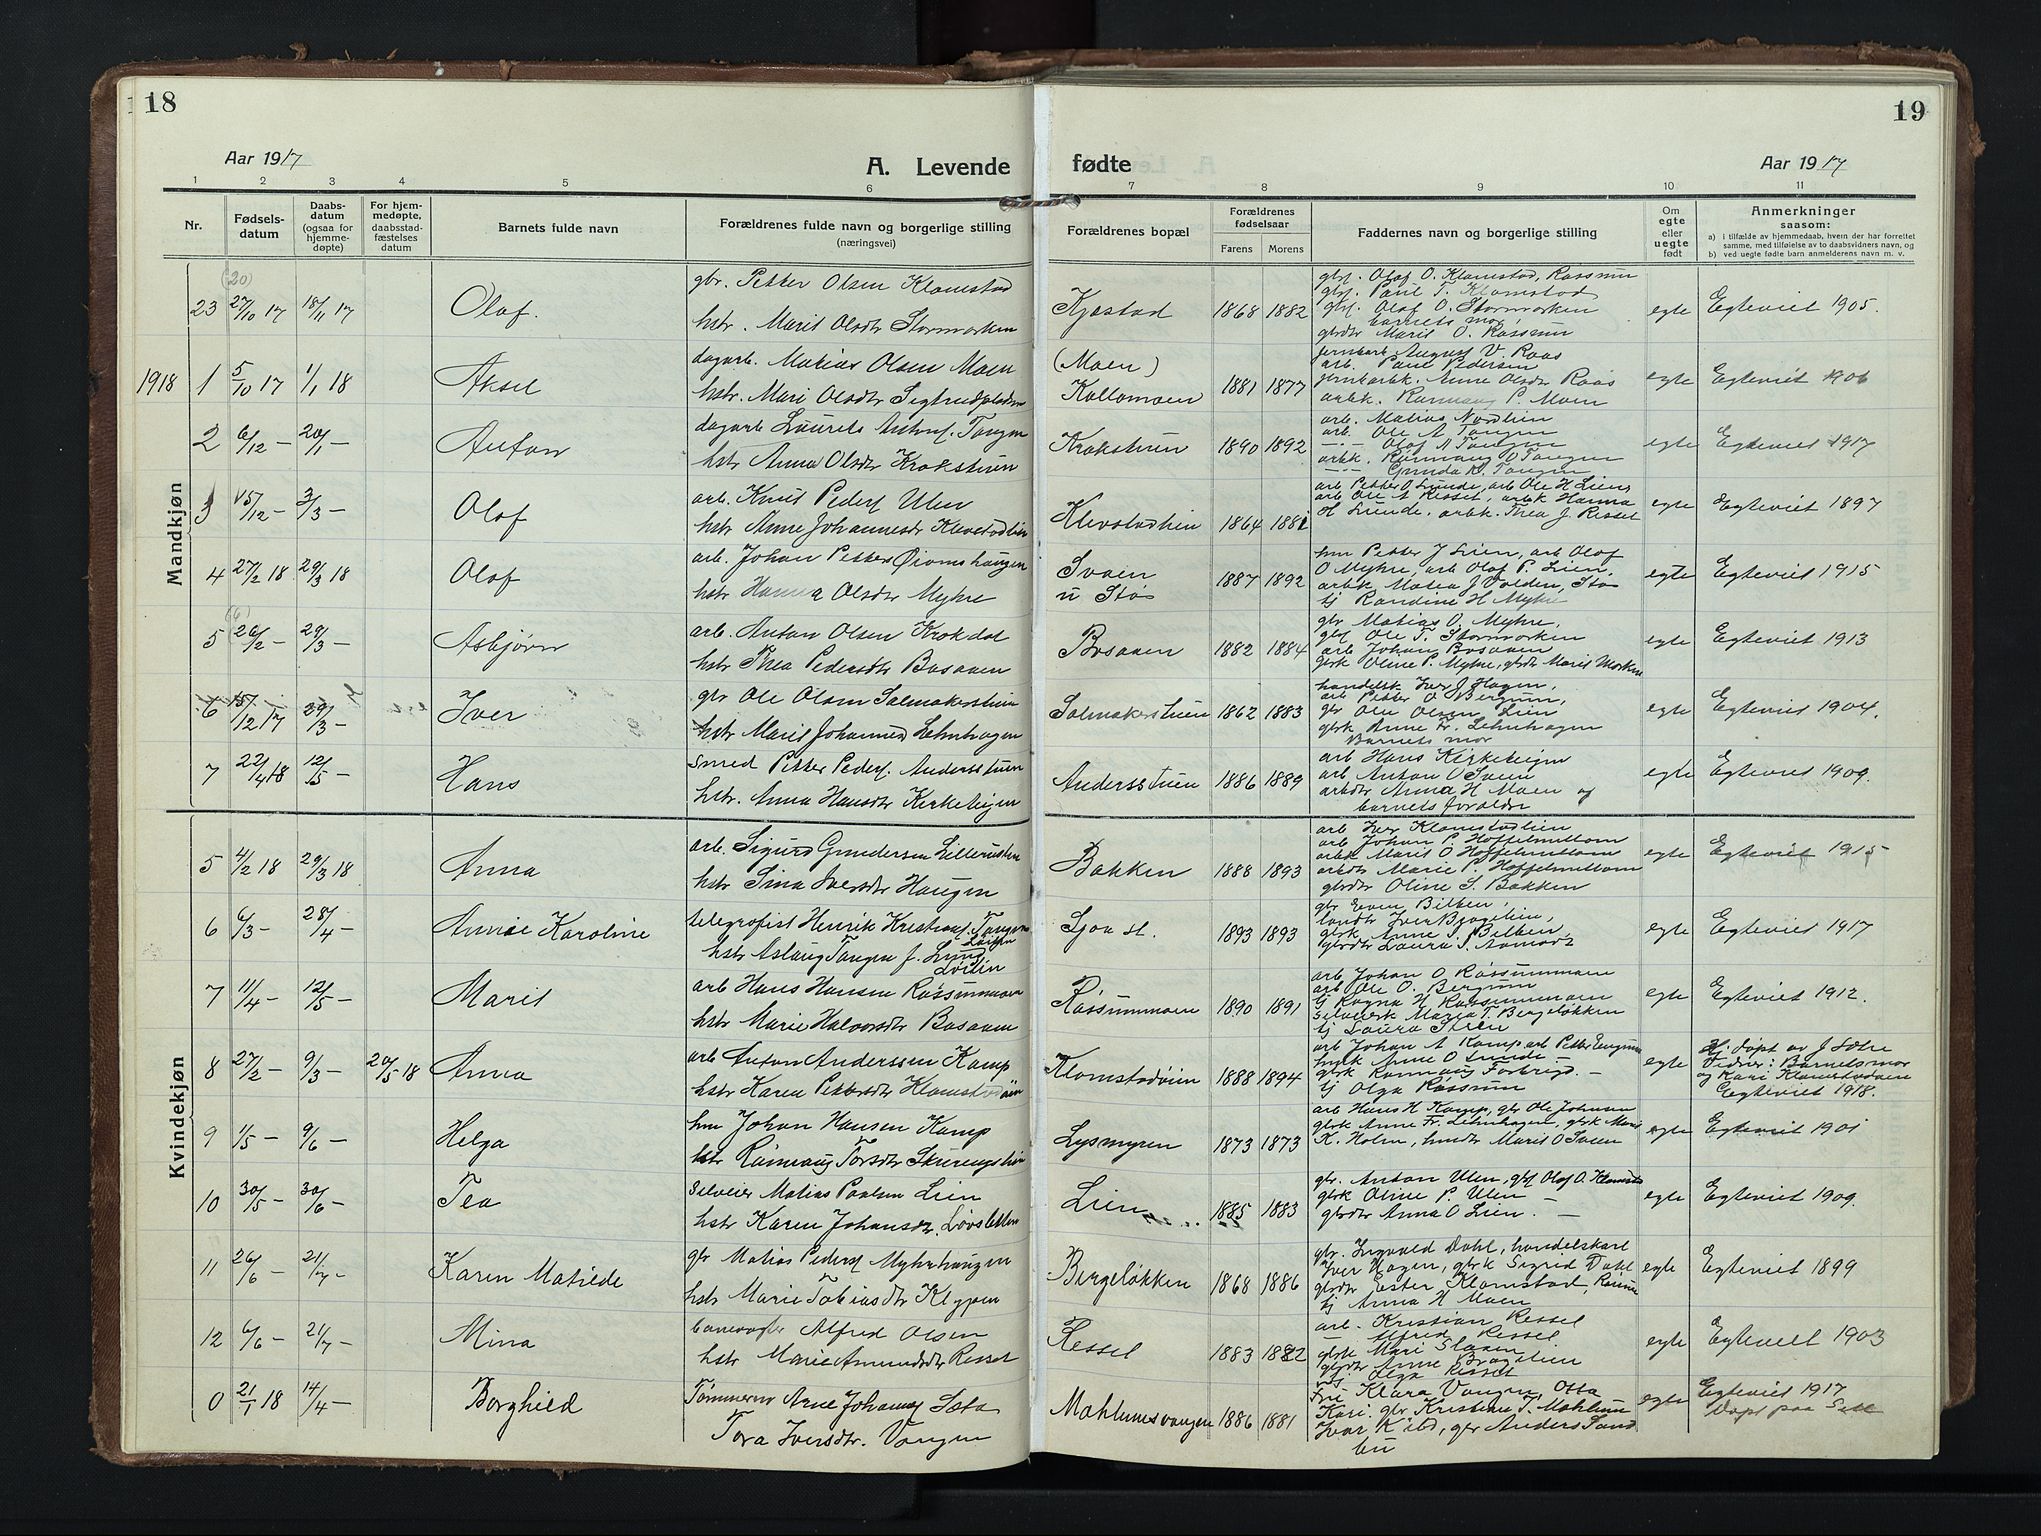 18
19
Aar 1917
A. Levende
fødte
Aar 1917
1 2 3 4 5 6
7 8 9 10 11
Nr.
Fødsels-
datum
Daabs-
datum
(ogsaa for
hjemme-
døpte)
For hjem-
medøpte,
daabsstad-
fæstelses
datum
Barnets fulde navn
Forældrenes fulde navn og borgerlige stilling
(næringsvei)
Forældrenes bopæl
Forældrenes
fødselsaar
Farens Morens
Faddernes navn og borgerlige stilling
Om
egte
eller
uegte
født
Anmerkninger
saasom:
a) i tilfælde av hjemmedaab, hvem der har forrettet
samme, med tilføielse av to daabsvidners navn, og
b) ved uegte fødte barn anmelderens navn m. v.
Mandkjøn
(20)
23 27/10 17 18/11 17 Olaf.
gbr. Petter Olsen Klomstad
hstr. Marit Olsdtr Stormorken
Kjøstad 1868 1882
gbf. Olaf O. Klomstad, Rassum
gbf. Paul T. Klomstad
gbf. Olaf O. Stormorken
barnets mor
gbrdtr Marit O. Røssum
egte Egteviet 1905.
1918 1 5/10 17 1/1 18 Aksel
dagarb. Matias Olsen Moen
hstr. Mari Olsdtr
(Moen)
Kollomoen 1881 1877
jernbarb. August V. Raas
arb. Paul Pedersen
jernbarbk. Anne Olsdtr Raas
arbk. Rønnaug P. Moen
egte Egteviet 1906
2 6/12 - 20/1 - Anton
dagarb Laurits Antons. Tangen
hstr Anna Olsdtr Krokstuen
Krokstuen 1890 1892
arb. Matias Nordlien
arb. Ole A Tangen
-"- Olaf A Tangen
arbk. Rønnaug O Tangen
-"- Gunda K. Tangen
egte Egteviet 1917
3 15/12 - 3/3 - Olaf
arb. Knut Peders Ulen
hstr Anne Johannesdtr Klevstadlien
Klevstadlien 1864 1881
arb Petter O Lunde, arb Ole H Lien,
arb Ole A Resset, arbk Hanna
O Lunde, arbk. Thea J. Resset
egte Egteviet 1897
4 27/2 18 29/3 18 Olaf
arb. Johan Petter Øiomshaugen
hstr Hanna Olsdtr Myhre
Svaen
u Stø 1887 1892
hm Petter J Lien, arb Olaf
O Myhre, arb Olaf P. Lien,
arbk Matea J Volden, Stø
tj Randine H Myhre
egte Egteviet 1915
5 26/2 - 29/3 - Asbjørn
arb. Anton Olsen Krokdal
hstr Thea Pedersdtr Basaaen
Bosaaen 1882 1884
gbr Matias O, Myhre,
gbf Ole T. Stormorken
arb Johan Bosaaen
gbrk Oline P. Myhre, gbrdtr Marit Morken
egte Egteviet 1913
6 15/12 17 29/3 - Iver
gbr Ole Olsen Salmakerstuen
hstr Marit Johannesd Lehnhagen
Salmakerstuen 1862 1883
handelsk Iver J Hagen,
arb Petter O Bergum,
gbr Ole Olsen Lien
gbrk Anne Fr. Lehnhagen
Barnets mor
egte Egteviet 1904.
7 22/4 18 12/5 - Hans
smed Petter Peders. Andersstuen
hstr. Anna Hansdtr Kirketeigen
Andersstuen 1886 1889
arb Hans Kirketeigen
arb Anton O Svaen
arbdtr Anna H Moen og
barnets foraldre
egte Egteviet 1909.
Kvindekjøn
5 4/2 18 29/3 18 Anna
arb. Sigurd Gundersen
hstr Sina Iversdtr Haugen
Bakken 1888 1893
arb Iver Klomstadlien
arb Johan P. Hoffelmellom
arbk Marit O Hoffelmellom
arbdtr Marie P. Hoffelmellom
gbrdtr Oline S. Bakken
egte Egteviet 1915
6 6/3 - 28/4 - Annie Karoline
telegrafist Henrik Kristians. Tangen
hstr Aslaug Tangen f.
Sjoa st. 1893 1893
gbr Even Bilben,
landtr Iver Bragelien,
gbrk Anne S Bilben,
gbrdtr Laura S. Aamodt
egte Egteviet 1917
7 11/4 - 12/5 - Marit
arb Hans Hansen Røssummoen
hstr Marie Halvorsdtr Basaaen
Røssummoen 1890 1891
arb Johan O Røssummoen
arb Ole O. Bergum
tj Ragna H Røssummoen
selveierk Maria T. Bergeløkken
tj Laura Steen
egte Egteviet 1912.
8 27/2 - 9/3 - 20/5 18 Anna
arb Anton Anderssen Kamp
hstr Karen Pettersdtr
Klomstadøien 1888 1894
arb Johan A Kamp arb Petter Engum
hmk Anne O Lunde -
gbrk Rønnaug Forbrigd. -
tj Olga Røssum
egte Hj. døpt av J Sætre
Vidner: Barnets mor
og Kari
Egteviet 1918.
9 1/5 - 9/6 - Helga
hm Johan Hansen Kamp
hstr Rønnaug Torsdtr
Lysmyren 1873 1873
arb Hans H Kamp, gbr Ole Johnsen
gbrk Anne Fr. Lehnhagen, gbrk Marit
K. Holen, hmdtr Marit O Svaen
egte Egteviet 1901
10 30/5 - 30/6 - Tea
selveier Matias Paulsen Lien
hstr Karen Johansdtr. Løvsletten
Lien 1885 1883
gbr. Anton Ulen, gbf Olaf O. Klomstad
gbrk Oline P. Ulen -
gbrdtr Anna O Lien. -
egte Egteviet 1909.
11 26/6 - 21/7 - Karen Matilde
gbr Matias Peders Myhrhaugen
hstr Marie Tobiasdtr Klypen
Bergeløkken 1868 1886
gbr. Ingvald Dahl, handelskarl
Iver Hagen, gbrk Sigrid Dahl
gbrdtr Ester Klomstad,
tj Anna H Moen
egte Egteviet 1899
12 6/6 - 21/7 - Mina
banevogter Alfred Olsen
hstr Marie Amundsdtr Resset
Ressel 1883 1882
arb. Kristian Ressel
- Alfred Ressel
gbrk Mari Slaaen
gbrdtr Anne Bragelien
Olga Resset
egte Egteviet 1903
0 21/1 18 14/4 - Borghild
Tømmerm Arne Johannes
Tora Iversdtr. Vangen
Mahlumsvangen 1886 1881
Frk Klara Vangen, Otta
Kari. gbr Kristian T. Mahlum
Ivar Kits, gbr Anders Sand
bu
egte Egteviet 1917
Døpt paa Sell